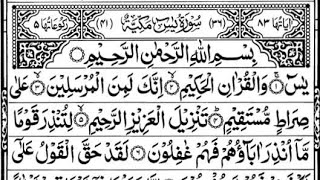 اٰیَاتُهَا ۸۳ (۳۶) سُوْرَةُ يٰسٓ مَكِّيَّةٌ (۴۱) رُكُوْعَاتُهَا ۵
بِسْمِ اللهِ الرَّحْمٰنِ الرَّحِيْمِ
يٰسٓ ۝۱ وَالْقُرْاٰنِ الْحَكِيْمِ ۝۲ اِنَّكَ لَمِنَ الْمُرْسَلِيْنَ ۝۳ عَلٰى
صِرَاطٍ مُّسْتَقِيْمٍ ۝۴ تَنْزِيْلَ الْعَزِيْزِ الرَّحِيْمِ ۝۵ لِتُنْذِرَ قَوْمًا
مَّاۤ اُنْذِرَ اٰبَآؤُهُمْ فَهُمْ غٰفِلُوْنَ ۝۶ لَقَدْ حَقَّ الْقَوْلُ عَلٰۤى